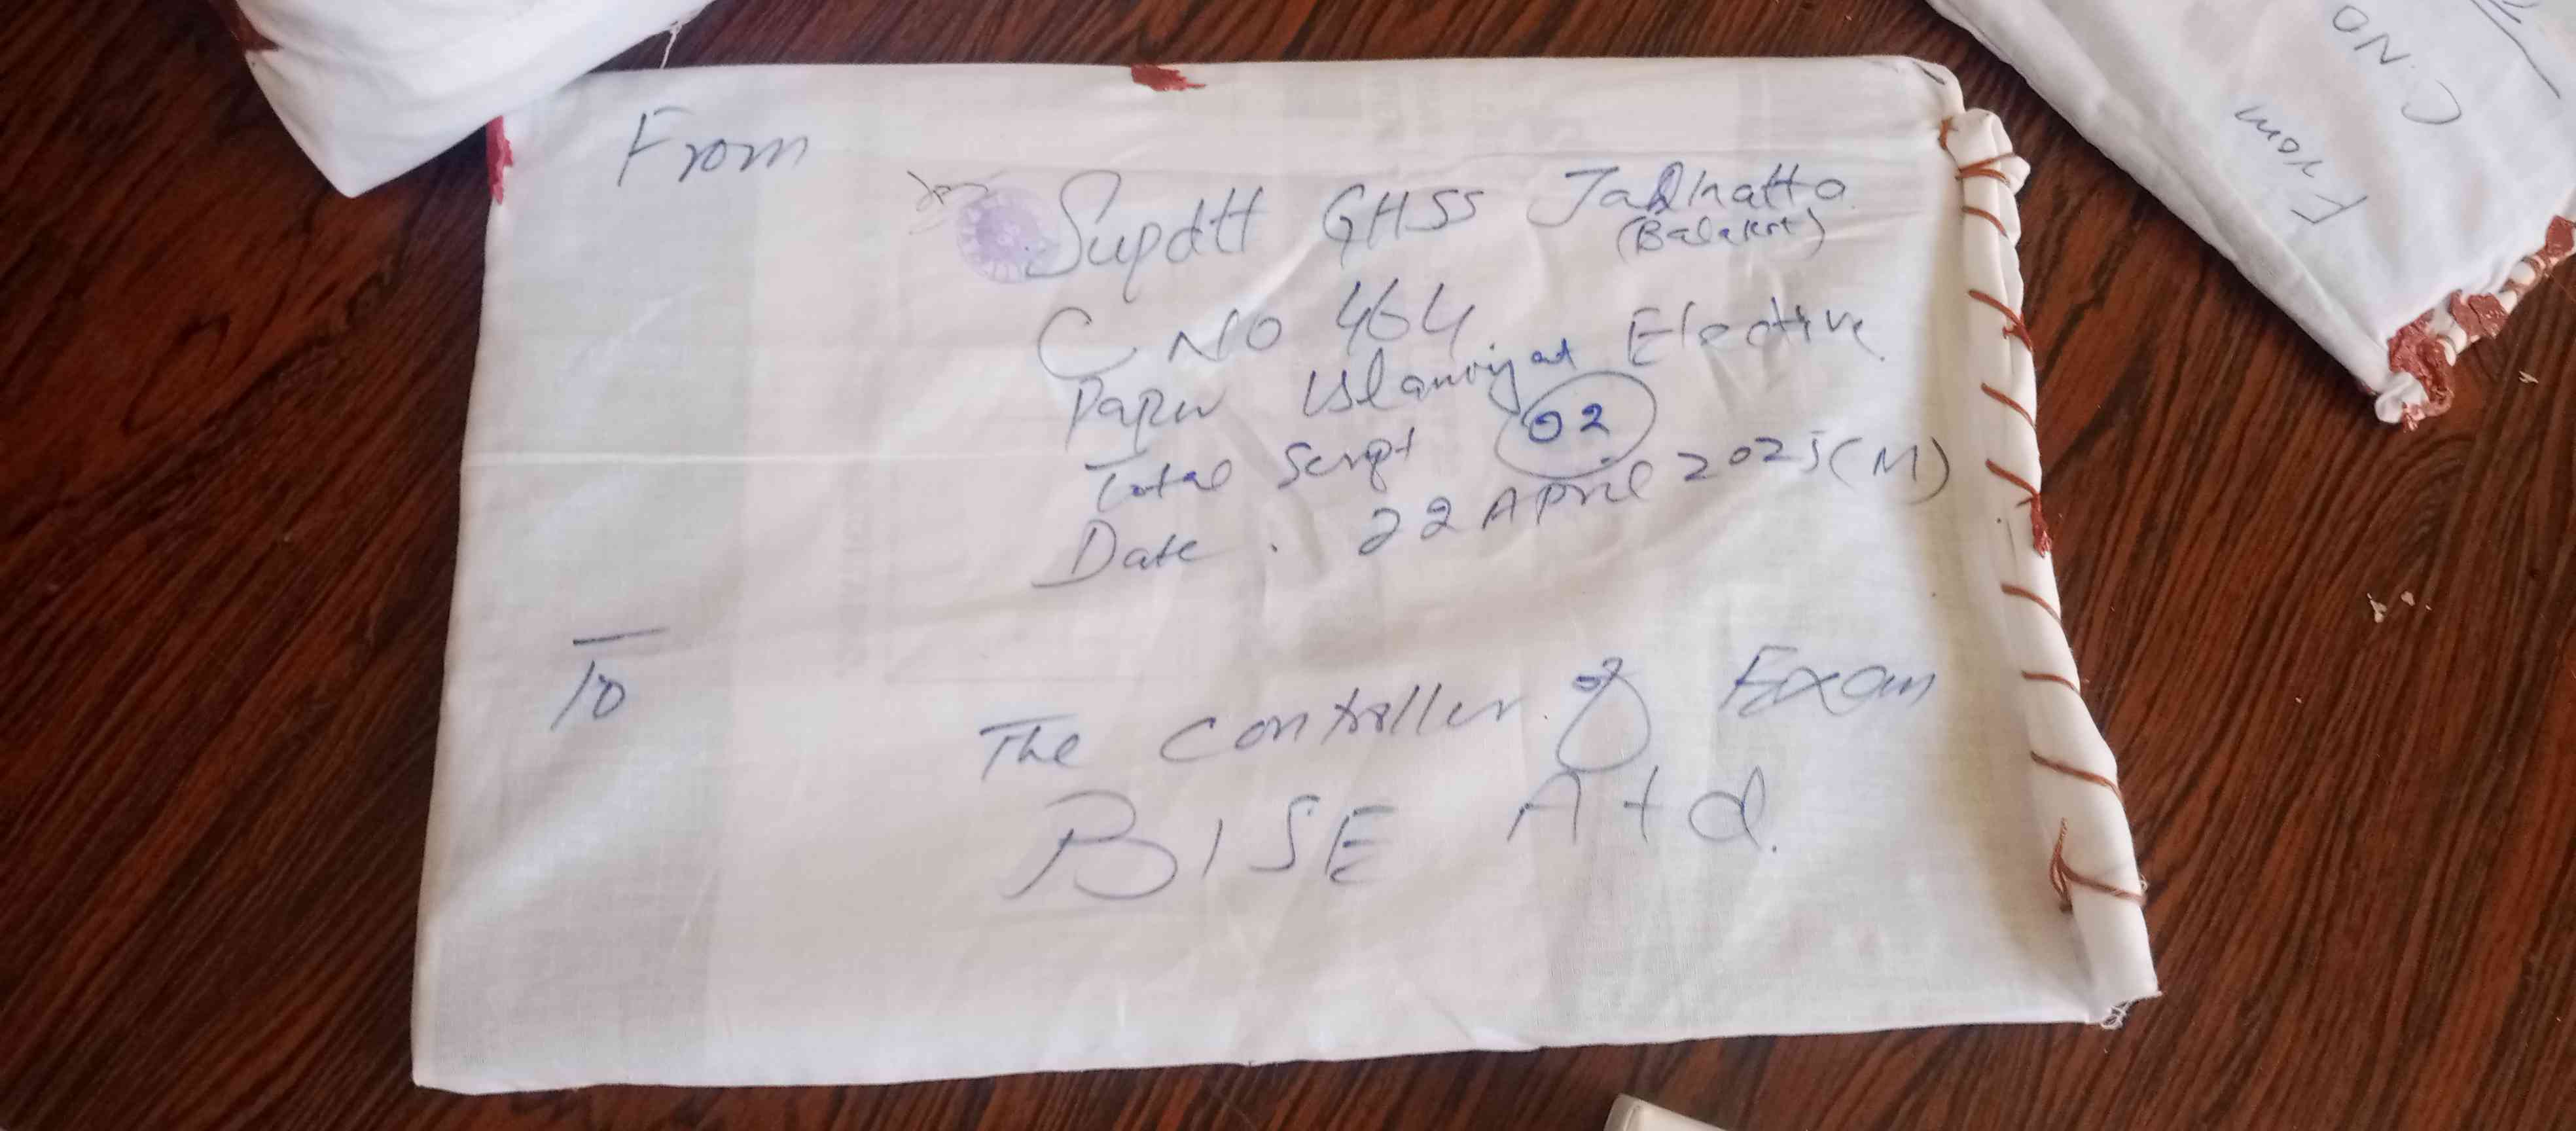 From
Supdtt GHSS Jabhatta
(Balakot)
C NO 464
Paper Islamiyat Elective
Total Script 02
Date. 22 April 2025 (M)
To
The Controller of Exam
BISE Atd.
From
C.NO